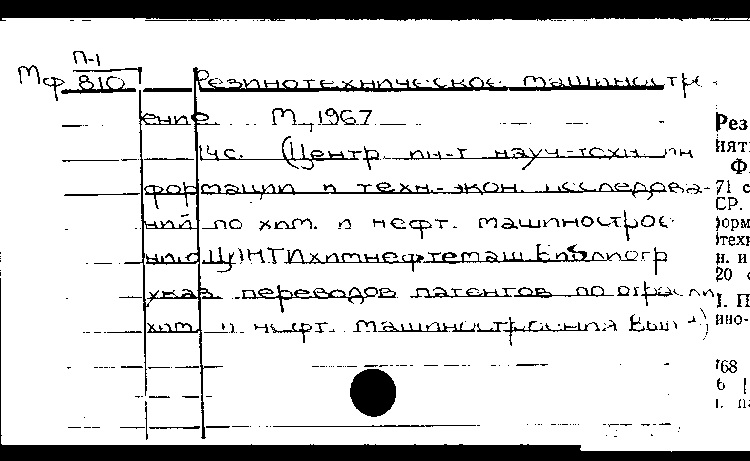 П-1
Мф 810
Резинотехническое машиностро-
ение. М., 1967
14с. (Центр. ин-т науч.-техн. ин
формации и техн.-экон. исследова-
ний по хим. и нефт. машиностроe
нию ЦИНТИхимнефтемаш Библиогр
указ. переводов патентов по отрасли
хим. и нефт. машиностроения Вып
Рез
ият
Ф
71 с
СР.
орм
техн
н. и
20 с
I. П
ино-
68
6